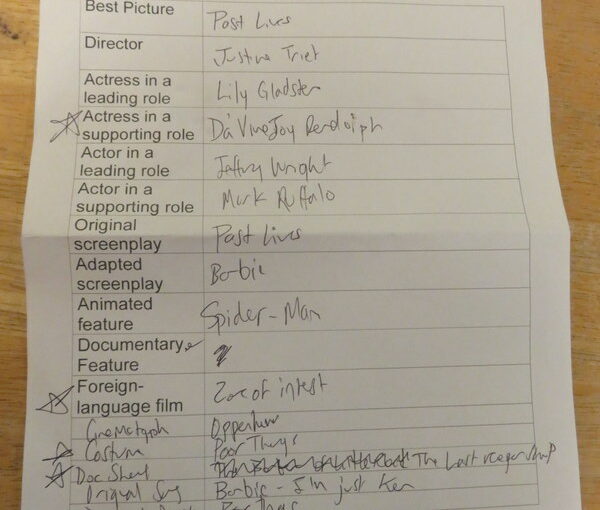 Best Picture Past Lives
Director Justine Triet
Actress in a leading role Lily Gladston
Actress in a supporting role Da'Vine Joy Randolph
Actor in a leading role Jeffrey Wright
Actor in a supporting role Mark Ruffalo
Original screenplay Past Lives
Adapted screenplay Barbie
Animated feature Spider-Man
Documentary Feature
Foreign-language film Zone of intrest
Cinematograph Oppenheimer
Costume Poor Things
Doc Short The Last
Original Song Barbie - I'm just Ken